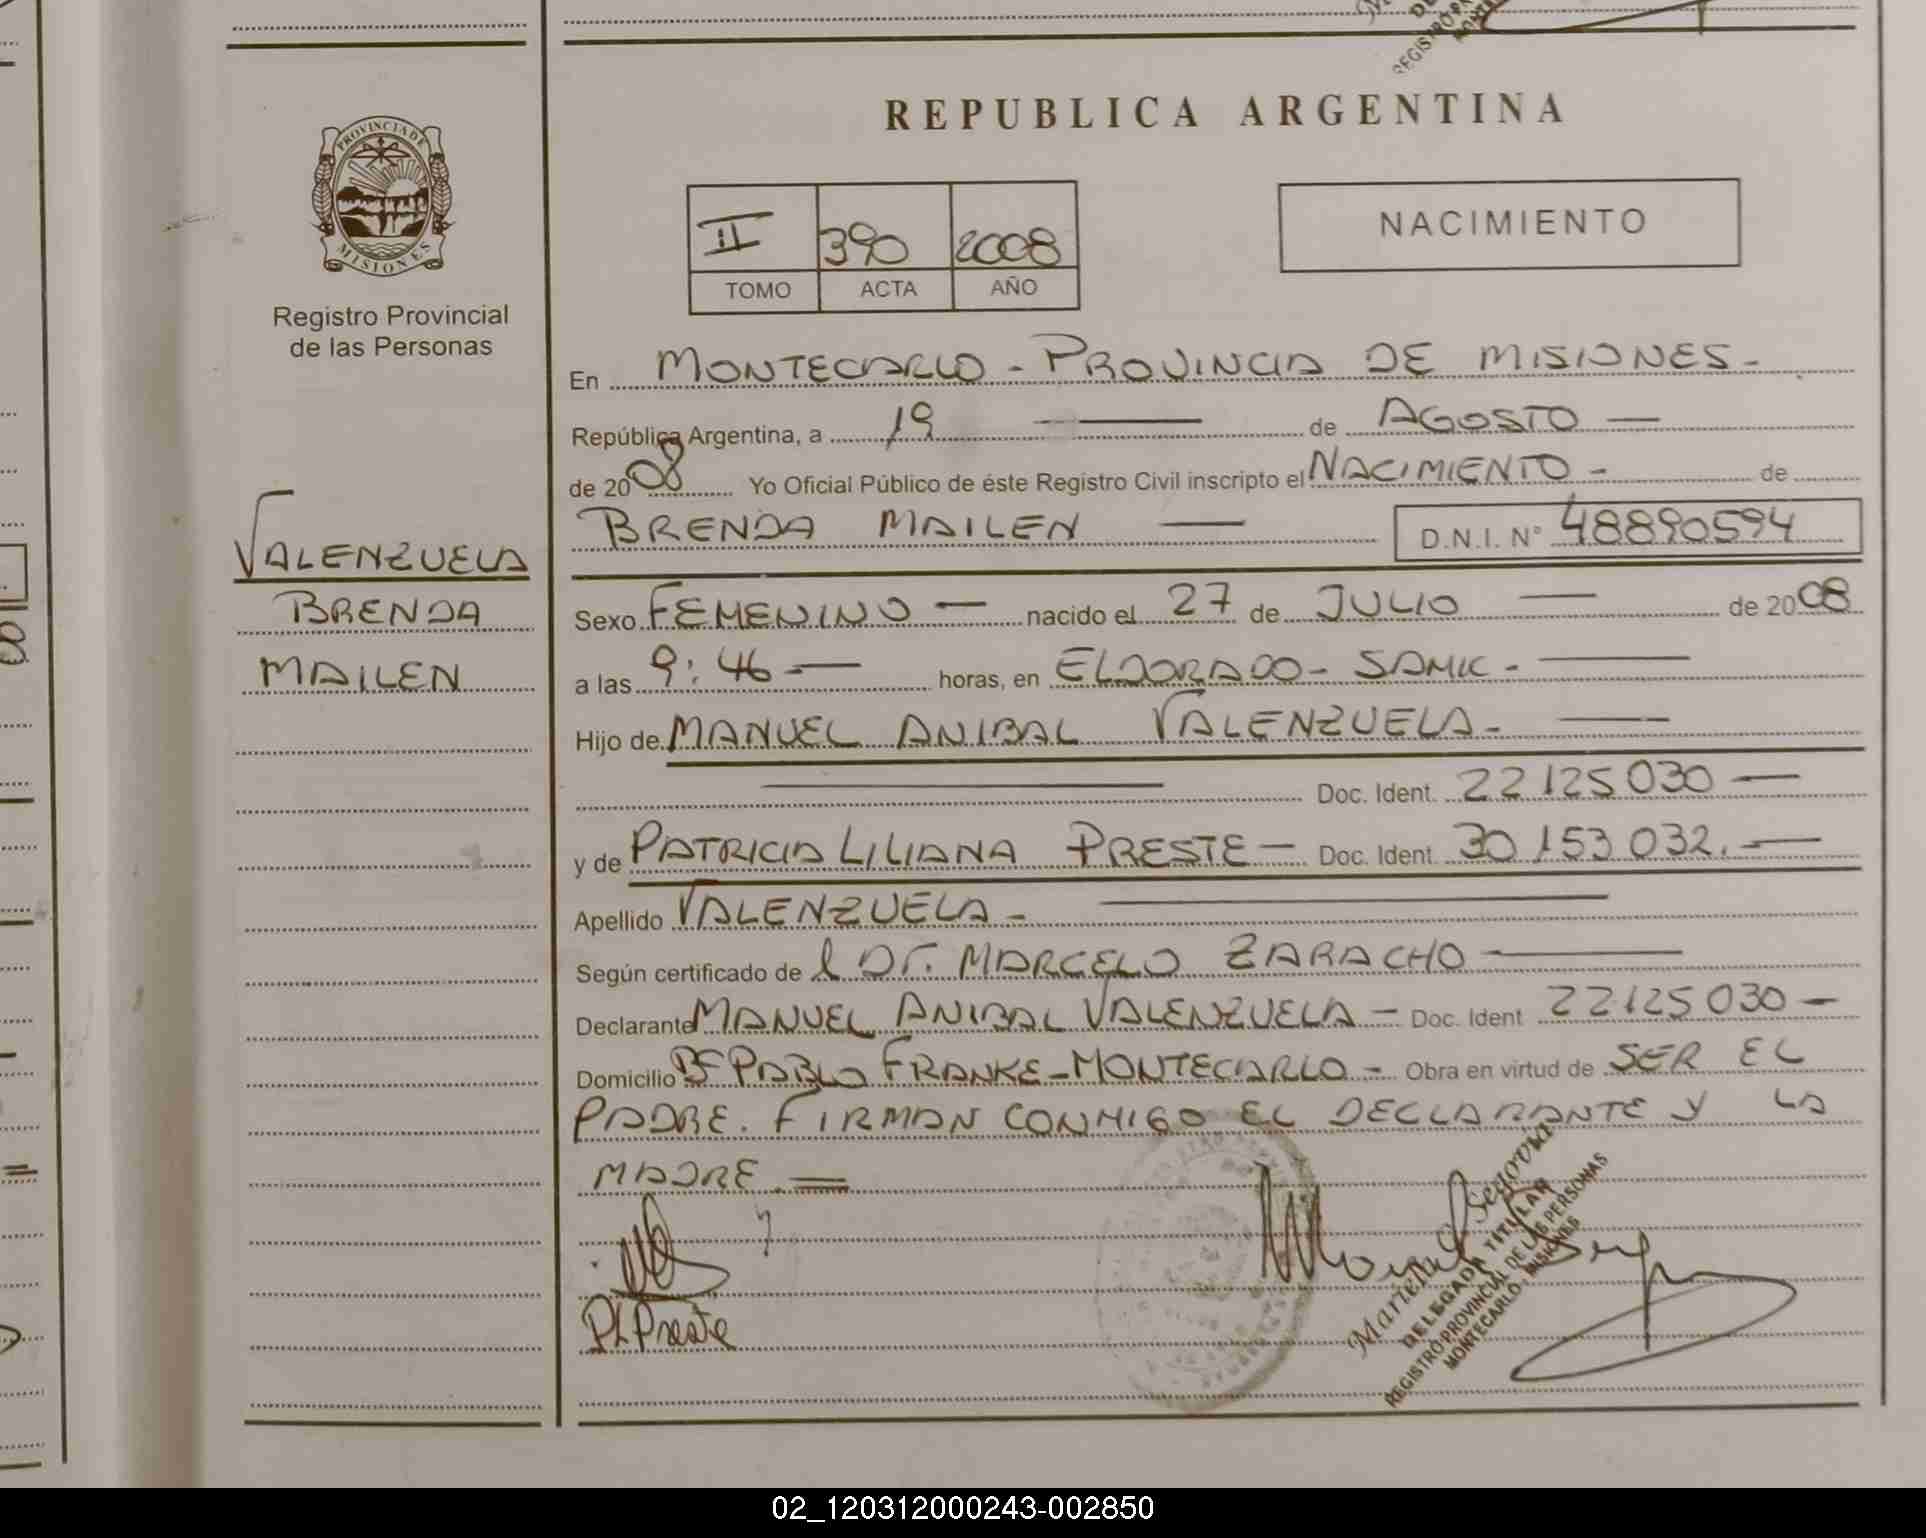 REPUBLICA ARGENTINA
PROVINCIA DE
MISIONES
Registro Provincial
de las Personas
II 390 2008
TOMO ACTA AÑO
NACIMIENTO
En MONTECARLO - PROVINCIA DE MISIONES -
República Argentina, a 19 de AGOSTO
de 2008 Yo Oficial Público de éste Registro Civil inscripto el NACIMIENTO - de
BRENDA MAILEN D.N.I. N° 48890594
VALENZUELA
BRENDA
MAILEN
Sexo FEMENINO nacido el 27 de JULIO de 2008
a las 9:46 horas, en ELDORADO - SAMIC -
Hijo de MANUEL ANIBAL VALENZUELA -
Doc. Ident. 22125030
y de PATRICIA LILIANA PRESTE Doc. Ident. 30153032.
Apellido VALENZUELA -
Según certificado de l Dr. MARCELO ZARACHO
Declarante MANUEL ANIBAL VALENZUELA - Doc. Ident 22125030 -
Domicilio Bº PABLO FRANKE - MONTECARLO - Obra en virtud de SER EL
PADRE. FIRMAN CONMIGO EL DECLARANTE Y LA
MADRE.
PL Preste
Segovia
DELEGADA TITULAR
REGISTRO PROVINCIAL DE LAS PERSONAS
MONTECARLO - MISIONES
02_120312000243-002850